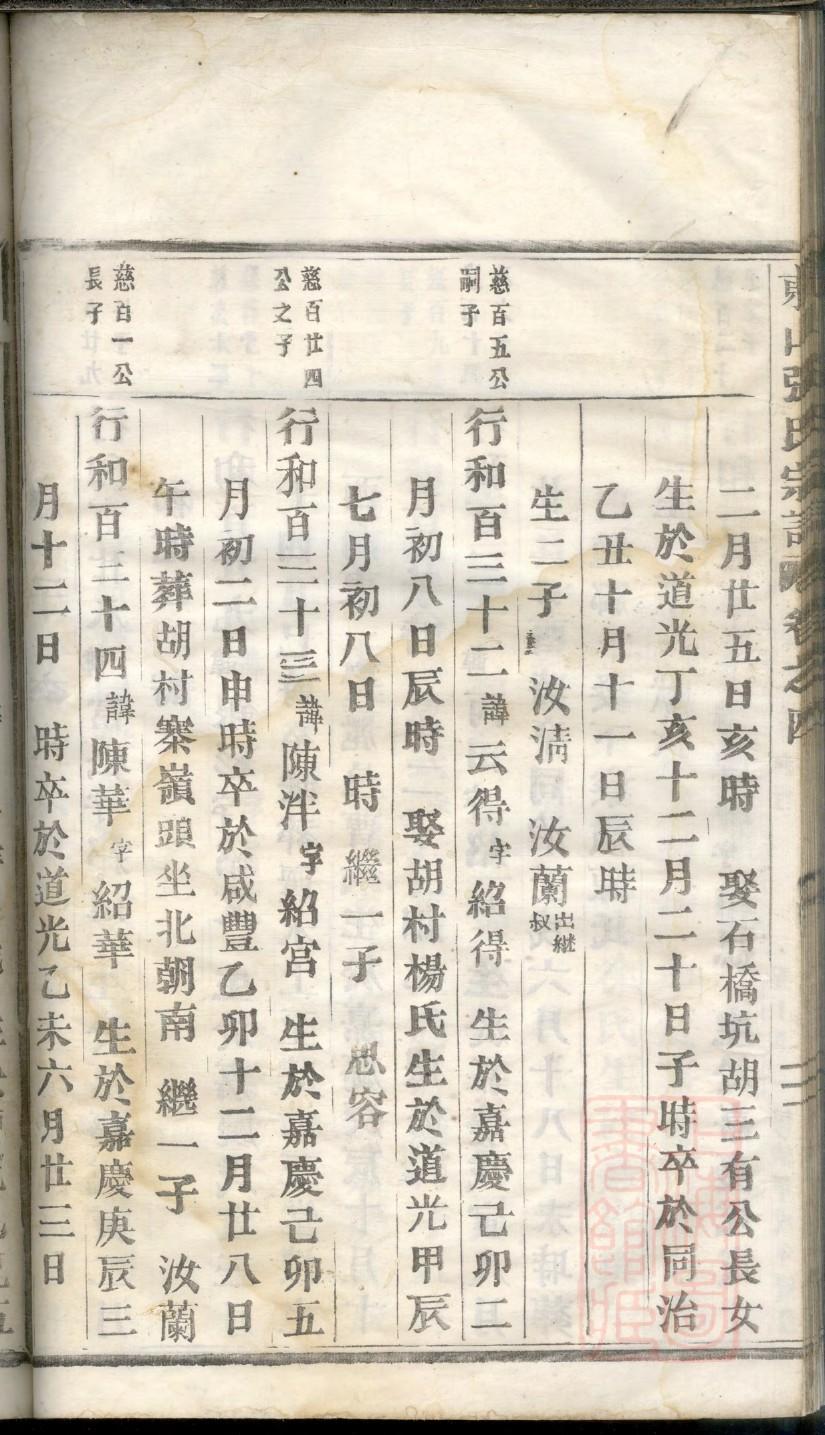 東山張氏宗譜 卷之四
二月廿五日亥時 娶石橋坑胡三有公長女
生於道光丁亥十二月二十日子時卒於同治
乙丑十月十一日辰時
生二子 汝淸 汝蘭出継叔
慈百五公嗣子
行和百三十二諱云得字紹得 生於嘉慶己卯二
月初八日辰時 娶胡村楊氏生於道光甲辰
七月初八日 時 繼一子 思容
慈百廿四公之子
行和百三十三諱陳泮字紹宫 生於嘉慶己卯五
月初二日申時卒於咸豐乙卯十二月廿八日
午時葬胡村寨嶺頭坐北朝南 繼一子 汝蘭
慈百一公長子
行和百三十四諱陳華字紹華 生於嘉慶庚辰三
月十二日 時卒於道光乙未六月廿三日